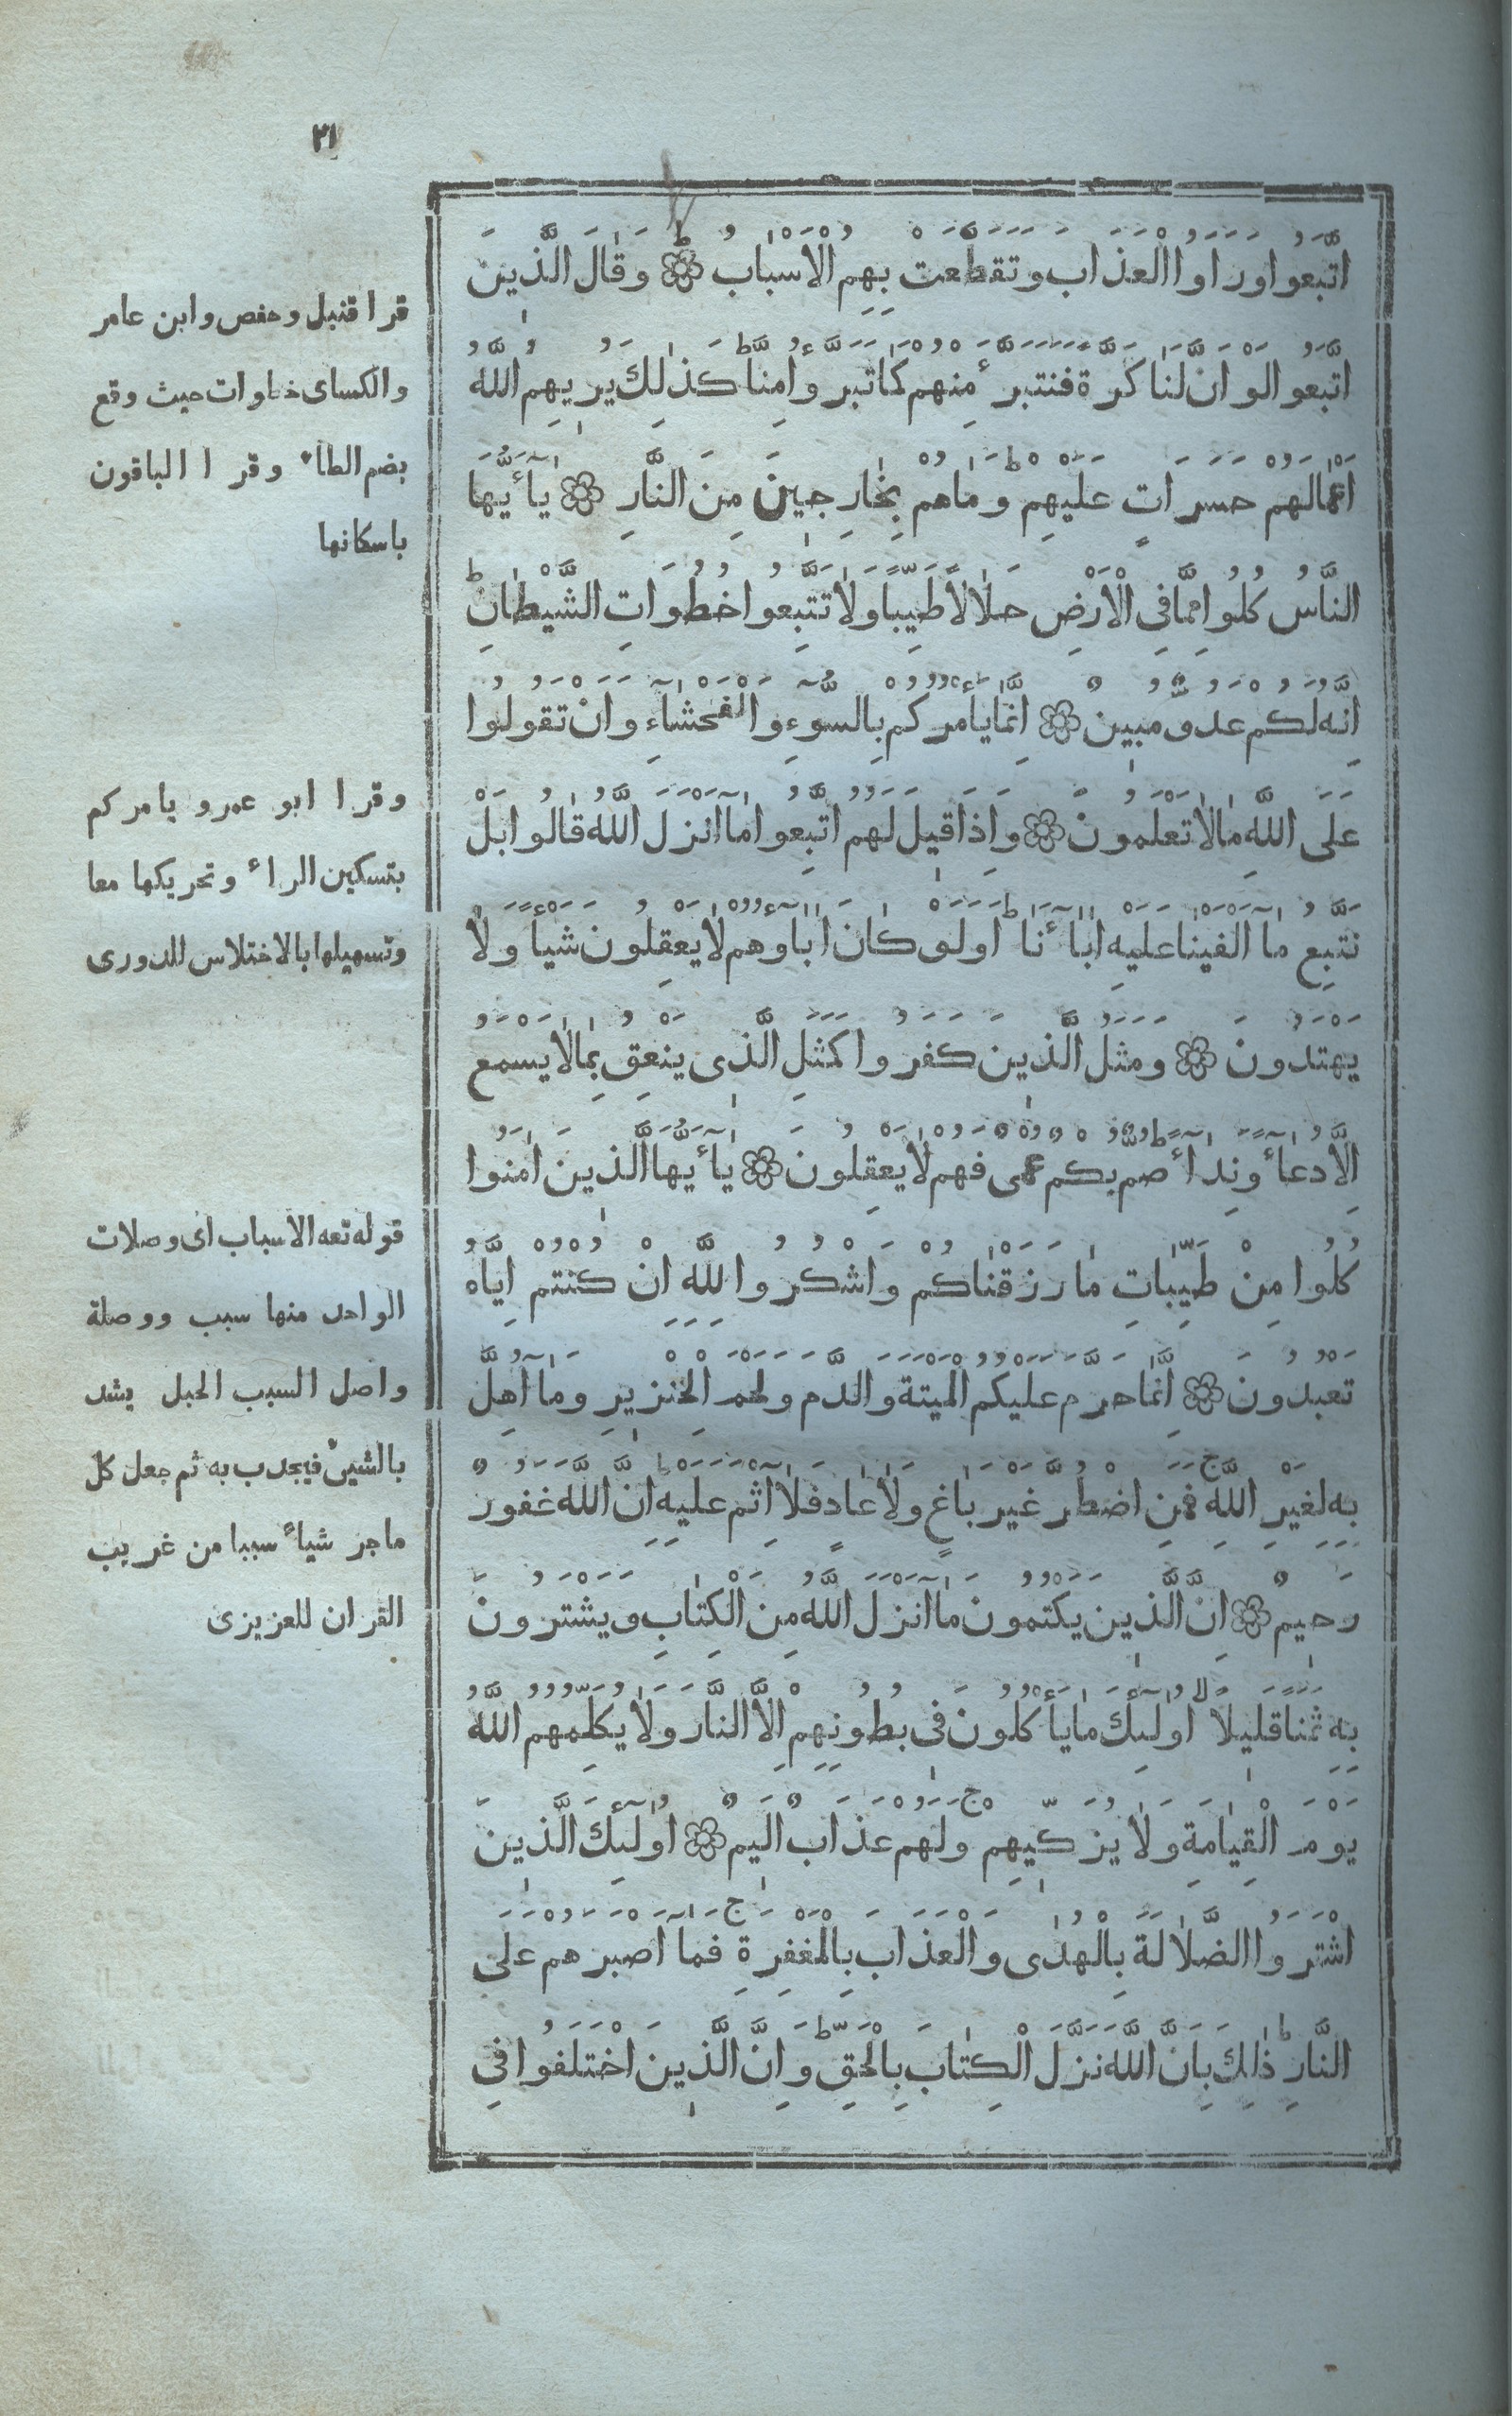 ٢١
اتَّبَعُوا وَرَاَوُا الْعَذَابَ وَتَقَطَّعَتْ بِهِمُ الْاَسْبَابُ ۞ وَقَالَ الَّذِينَ
اتَّبَعُوا لَوْ اَنَّ لَنَا كَرَّةً فَنَتَبَرَّءَ مِنْهُمْ كَمَا تَبَرَّؤُا مِنَّا ط كَذٰلِكَ يُرِيهِمُ اللّٰهُ
اَعْمَالَهُمْ حَسَرَاتٍ عَلَيْهِمْ ط وَمَاهُمْ بِخَارِجِينَ مِنَ النَّارِ ۞ يَآ ءَيُّهَا
النَّاسُ كُلُوا مِمَّا فِى الْاَرْضِ حَلَالًا طَيِّبًا وَلَا تَتَّبِعُوا خُطُوَاتِ الشَّيْطَانِ ط
اِنَّهُ لَكُمْ عَدُوٌّ مُبِينٌ ۞ اِنَّمَا يَأْمُرُكُمْ بِالسُّوءِ وَالْفَحْشَاءِ وَاَنْ تَقُولُوا
عَلَى اللّٰهِ مَا لَا تَعْلَمُونَ ۞ وَاِذَا قِيلَ لَهُمُ اتَّبِعُوا مَآ اَنْزَلَ اللّٰهُ قَالُوا بَلْ
نَتَّبِعُ مَآ اَلْفَيْنَا عَلَيْهِ اٰبَآءَنَا ط اَوَلَوْ كَانَ اٰبَاؤُهُمْ لَا يَعْقِلُونَ شَيْأً وَلَا
يَهْتَدُونَ ۞ وَمَثَلُ الَّذِينَ كَفَرُوا كَمَثَلِ الَّذِى يَنْعِقُ بِمَا لَا يَسْمَعُ
اِلَّا دُعَآءً وَنِدَآءً ط صُمٌّ بُكْمٌ عُمْىٌ فَهُمْ لَا يَعْقِلُونَ ۞ يَآ ءَيُّهَا الَّذِينَ اٰمَنُوا
كُلُوا مِنْ طَيِّبَاتِ مَا رَزَقْنَاكُمْ وَاشْكُرُوا لِلّٰهِ اِنْ كُنْتُمْ اِيَّاهُ
تَعْبُدُونَ ۞ اِنَّمَا حَرَّمَ عَلَيْكُمُ الْمَيْتَةَ وَالدَّمَ وَلَحْمَ الْخِنْزِيرِ وَمَآ اُهِلَّ
بِهِ لِغَيْرِ اللّٰهِ ج فَمَنِ اضْطُرَّ غَيْرَ بَاغٍ وَلَا عَادٍ فَلَآ اِثْمَ عَلَيْهِ ط اِنَّ اللّٰهَ غَفُورٌ
رَحِيمٌ ۞ اِنَّ الَّذِينَ يَكْتُمُونَ مَآ اَنْزَلَ اللّٰهُ مِنَ الْكِتَابِ وَيَشْتَرُونَ
بِهِ ثَمَنًا قَلِيلًا لا اُولٰئِكَ مَا يَأْكُلُونَ فِى بُطُونِهِمْ اِلَّا النَّارَ وَلَا يُكَلِّمُهُمُ اللّٰهُ
يَوْمَ الْقِيَامَةِ وَلَا يُزَكِّيهِمْ ج وَلَهُمْ عَذَابٌ اَلِيمٌ ۞ اُولٰئِكَ الَّذِينَ
اشْتَرَوُا الضَّلَالَةَ بِالْهُدٰى وَالْعَذَابَ بِالْمَغْفِرَةِ ج فَمَآ اَصْبَرَهُمْ عَلَى
النَّارِ ط ذٰلِكَ بِاَنَّ اللّٰهَ نَزَّلَ الْكِتَابَ بِالْحَقِّ ط وَاِنَّ الَّذِينَ اخْتَلَفُوا فِى
قرا قنبل وحفص وابن عامر
والكساى خطوات حيث وقع
بضم الطاء وقرا الباقون
باسكانها
وقرا ابو عمرو يامركم
بتسكين الراء وتحريكها معا
وتسهيلها بالاختلاس للدورى
قوله تعه الاسباب اى وصلات
الواحد منها سبب ووصلة
واصل السبب الحبل يشد
بالشئ فيجدب به ثم جعل كل
ماجر شياً سببا من غريب
القران للعزيزى